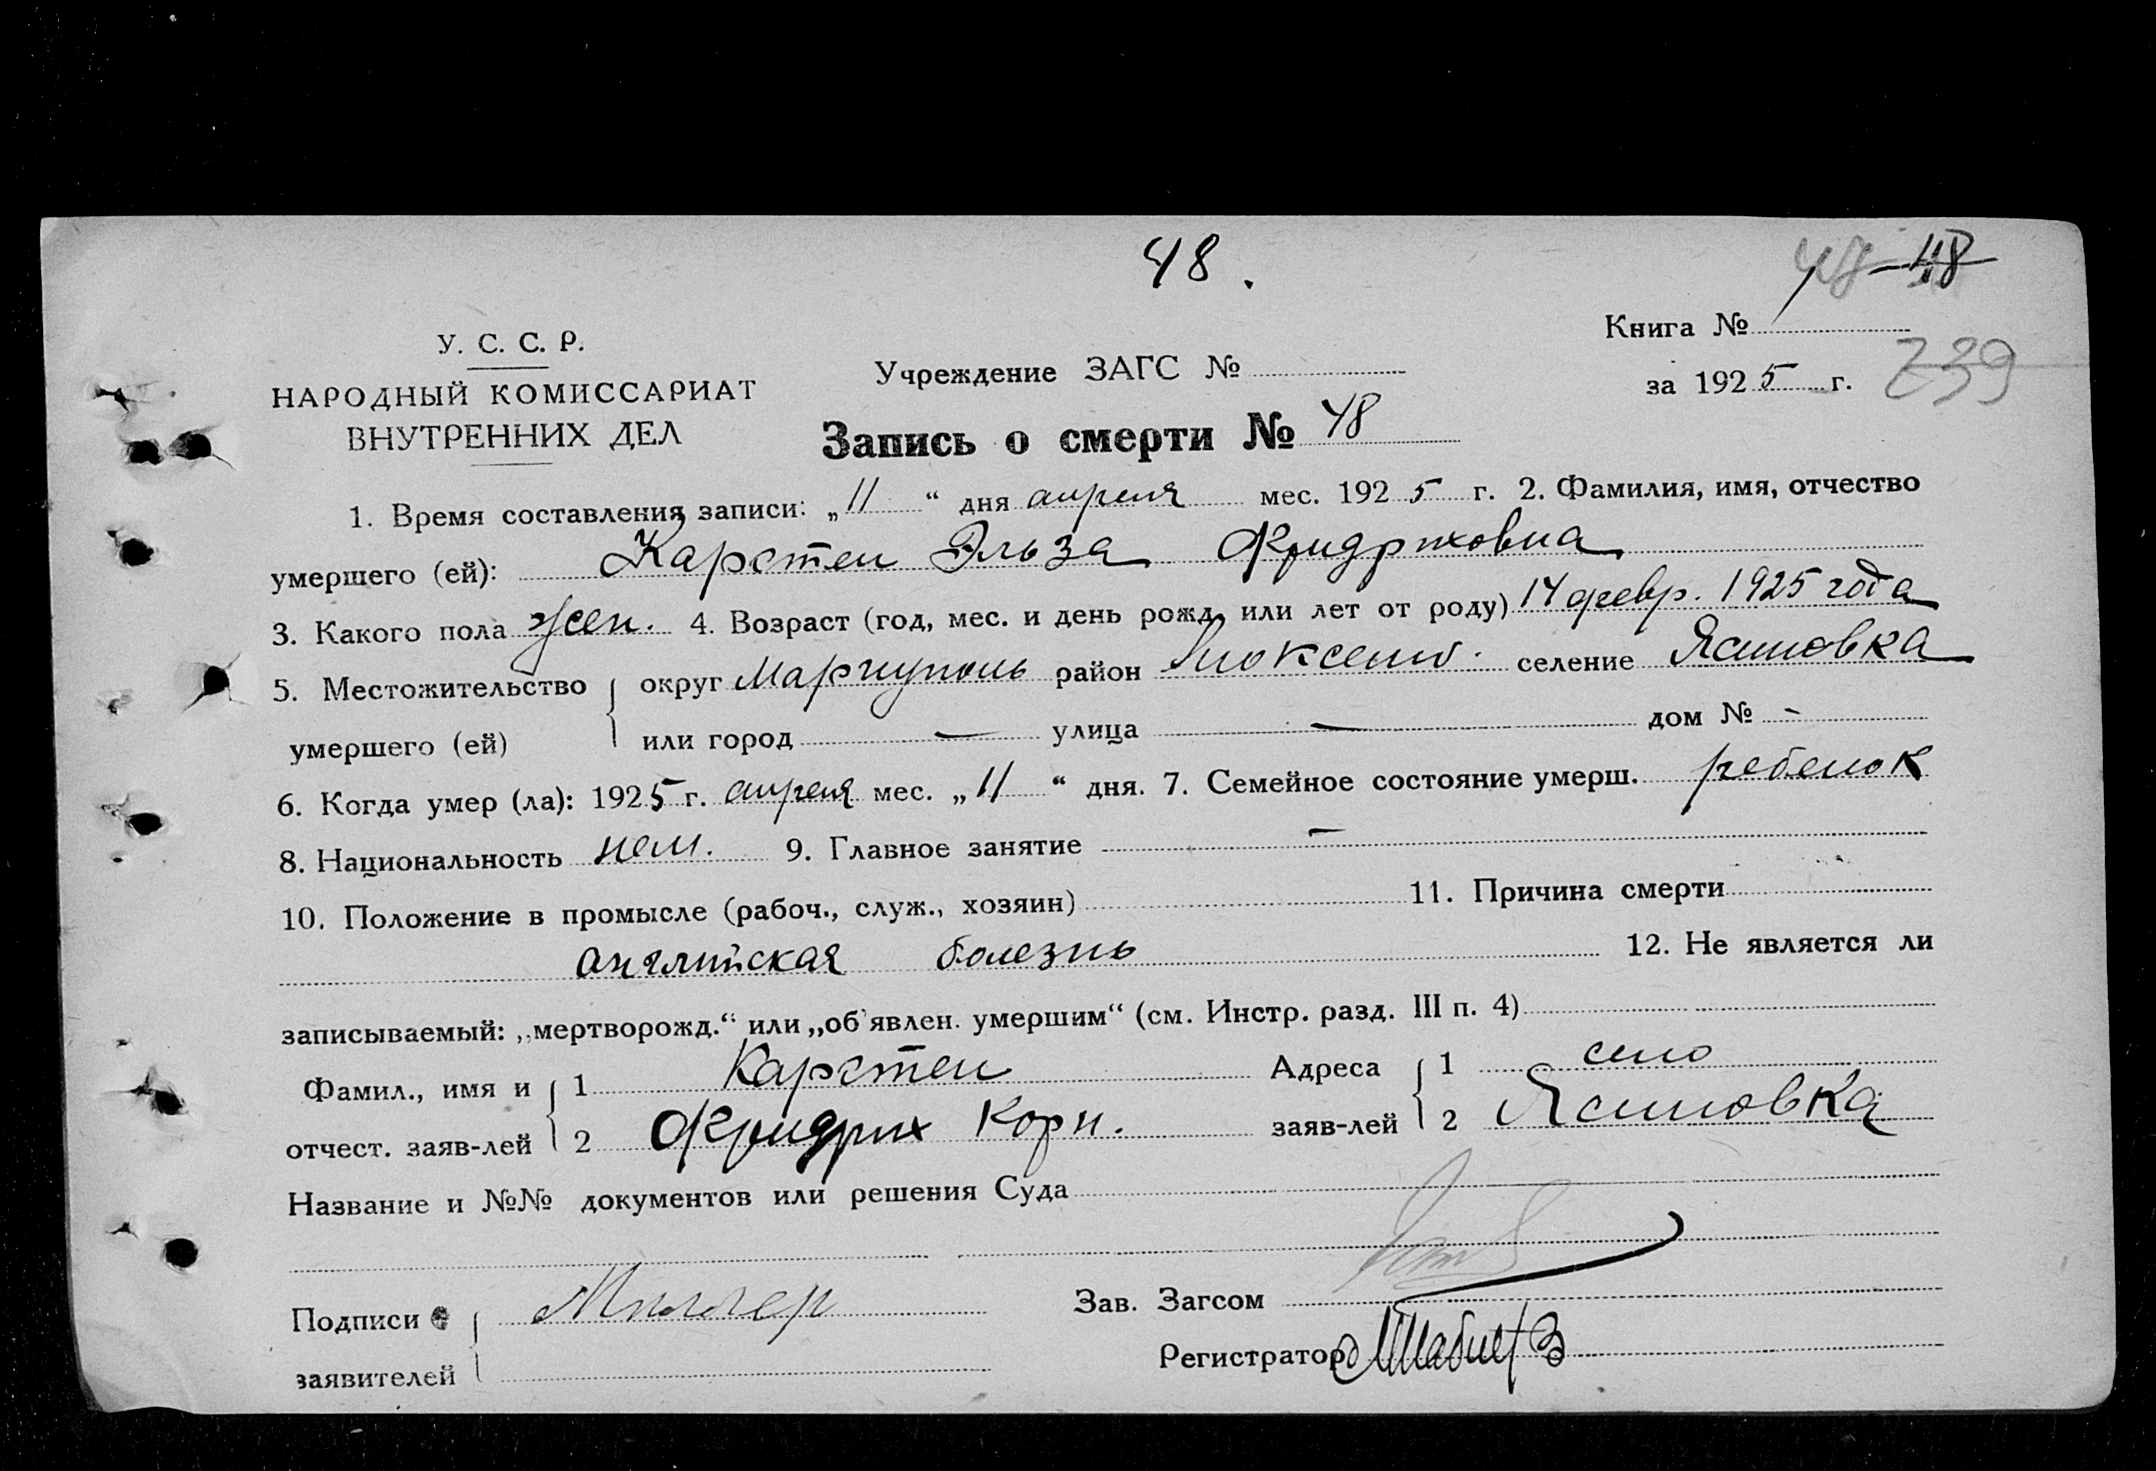 48.
48 – 48
У. С. С. Р.
НАРОДНЫЙ КОМИССАРИАТ
ВНУТРЕННИХ ДЕЛ
Книга №
Учреждение ЗАГС №
за 1925 г. 239
Запись о смерти № 48
1. Время составления записи: „11“ дня апреля мес. 1925 г. 2. Фамилия, имя, отчество
умершего (ей): Карстен Эльза Фридриховна
3. Какого пола жен. 4. Возраст (год, мес. и день рожд. или лет от роду) 14 февр. 1925 года
5. Местожительство округ Мариуполь район Люксемб. селение Ясиновка
умершего (ей) или город — улица — дом № -
6. Когда умер (ла): 1925 г. апреля мес. „11“ дня. 7. Семейное состояние умерш. ребенок
8. Национальность нем. 9. Главное занятие —
10. Положение в промысле (рабоч., служ., хозяин) 11. Причина смерти
английская болезнь 12. Не является ли
записываемый: „мертворожд.“ или „об'явлен. умершим“ (см. Инстр. разд. III п. 4)
Фамил., имя и 1 Карстен Адреса 1 село
отчест. заяв-лей 2 Фридрих Корн. заяв-лей 2 Ясиновка
Название и №№ документов или решения Суда
Подписи Миллер Зав. Загсом
заявителей Регистратор